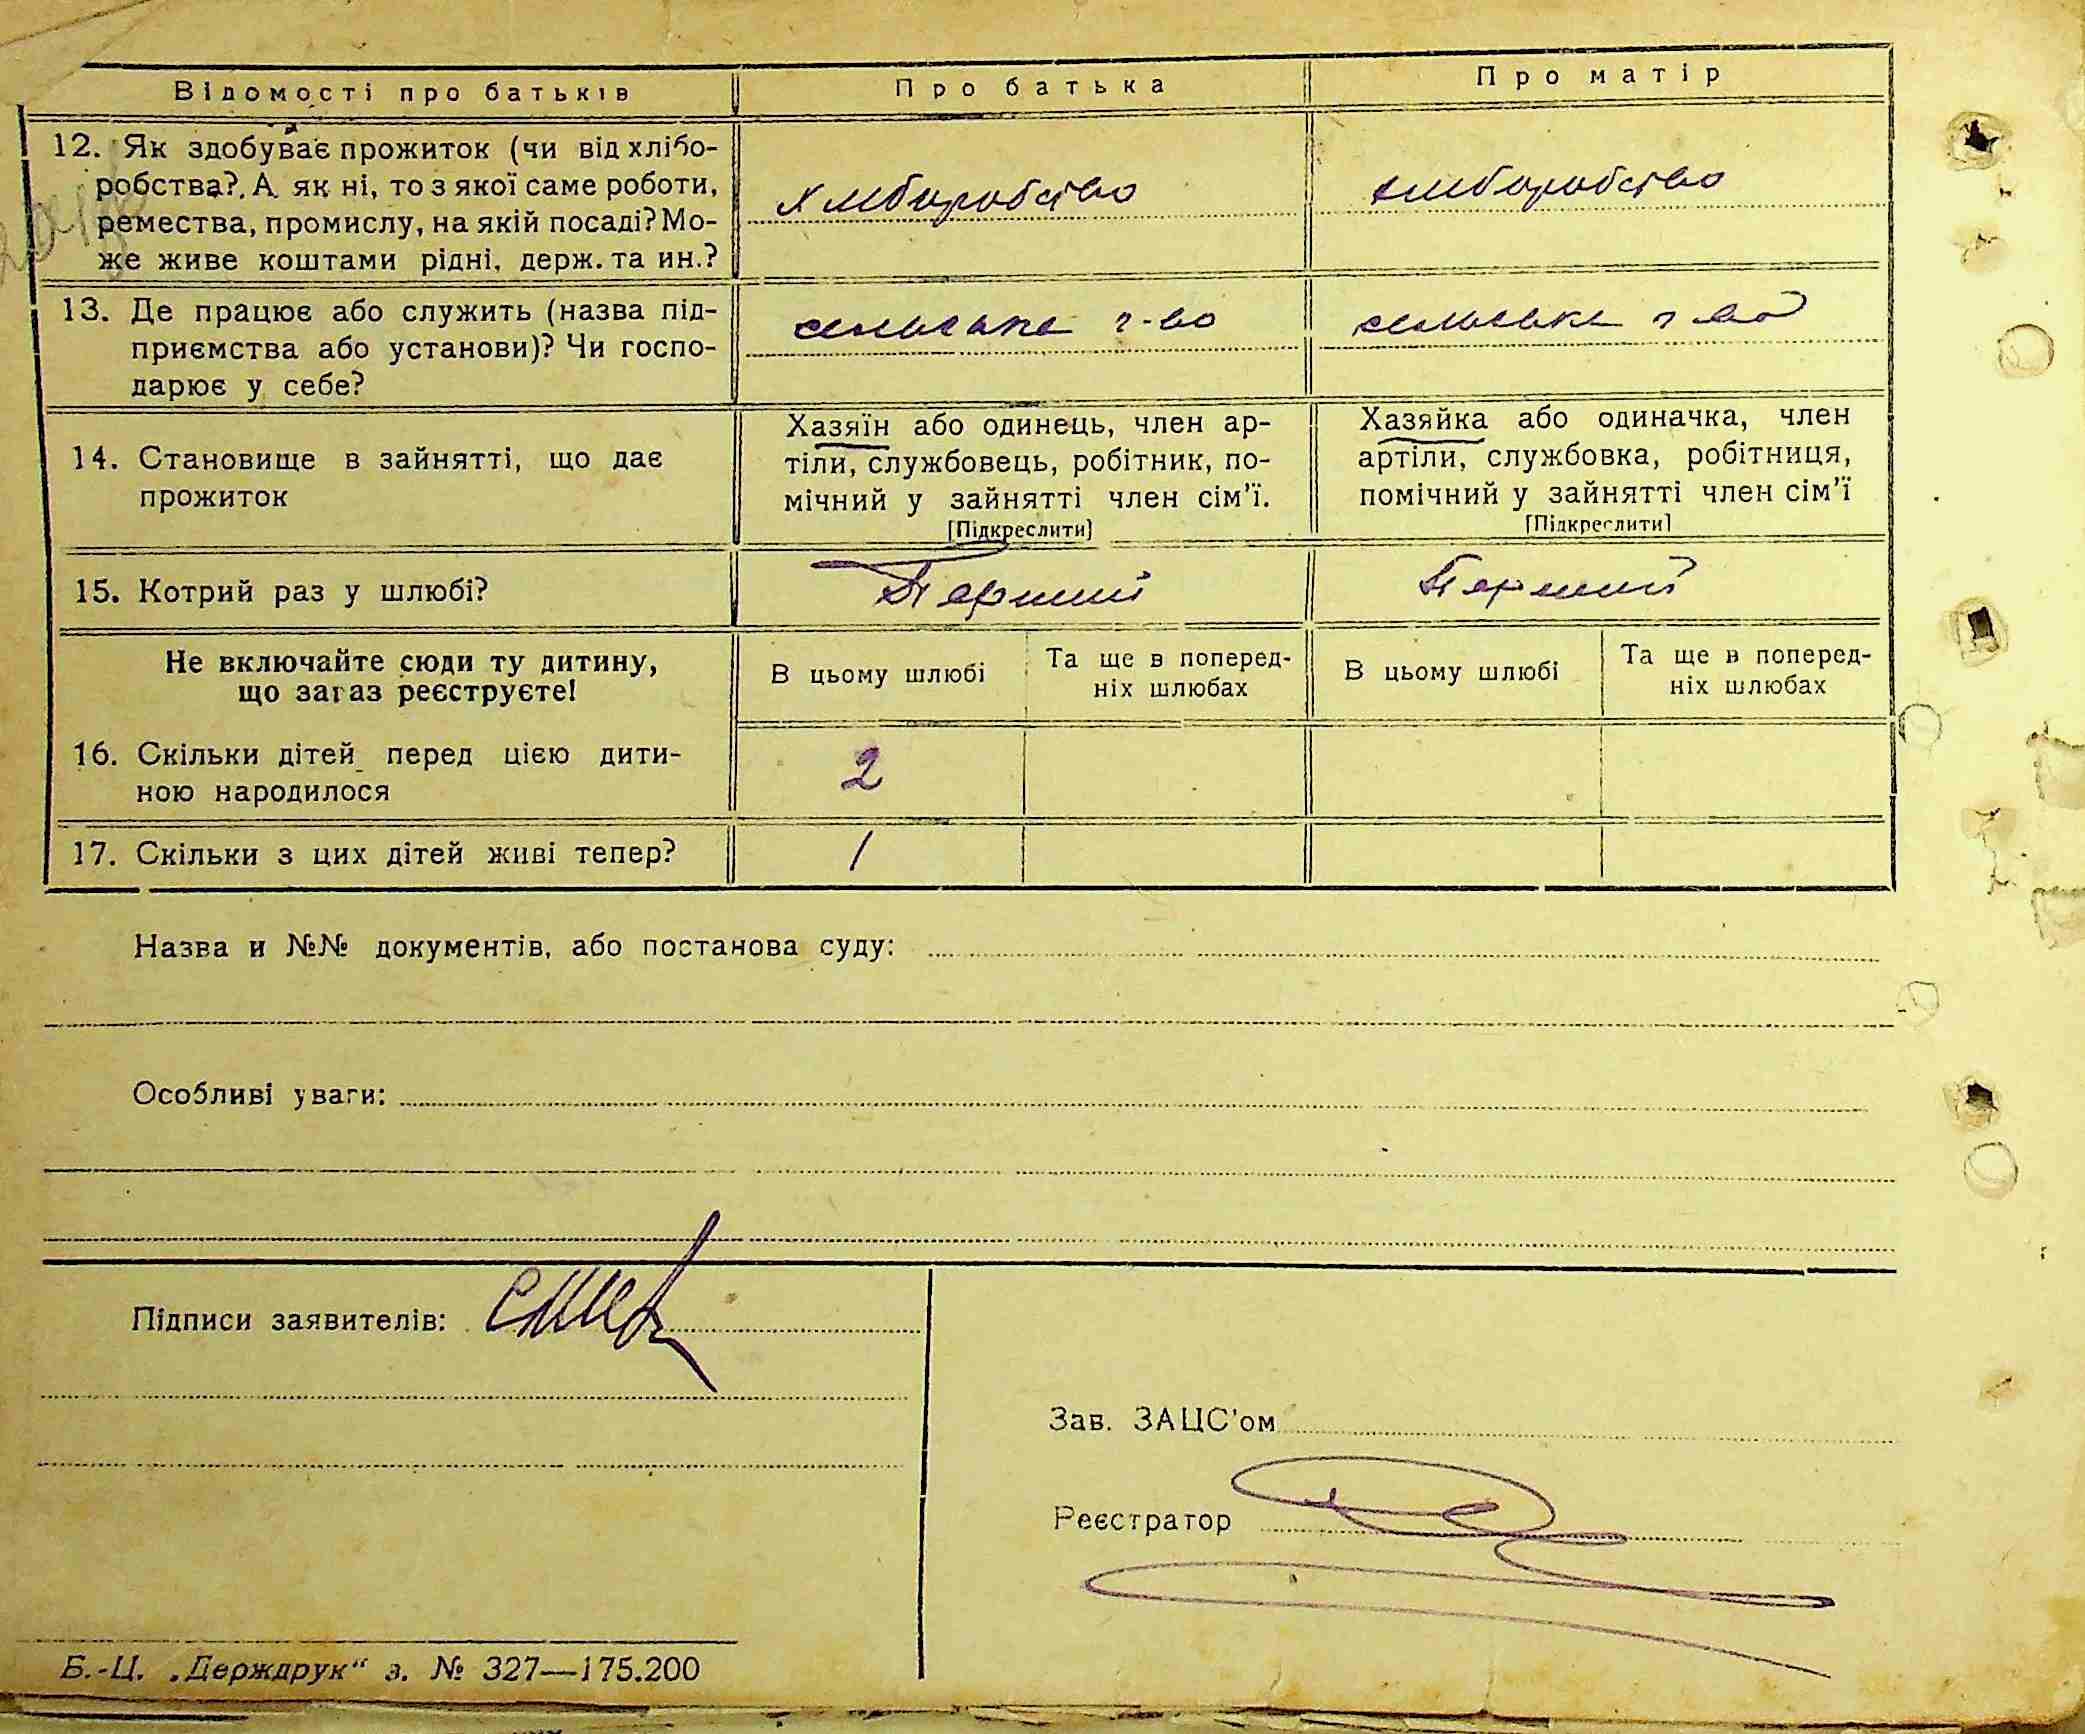 Відомості про батьків
Про батька
Про матір
12. Як здобуває прожиток (чи від хлібо-
робства? А як ні, то з якої саме роботи,
ремества, промислу, на якій посаді? Мо-
же живе коштами рідні, держ. та ин.?
хліборобство
хліборобство
13. Де працює або служить (назва під-
приємства або установи)? Чи госпо-
дарює у себе?
сельське г-во
сельське г-во
14. Становище в зайнятті, що дає
прожиток
Хазяїн або одинець, член ар-
тіли, службовець, робітник, по-
мічний у зайнятті член сім'ї.
[Підкреслити]
Хазяйка або одиначка, член
артіли, службовка, робітниця,
помічний у зайнятті член сім'ї
[Підкреслити]
15. Котрий раз у шлюбі?
Перший
Перший
Не включайте сюди ту дитину,
що зараз реєструєте!
В цьому шлюбі
Та ще в поперед-
ніх шлюбах
В цьому шлюбі
Та ще в поперед-
ніх шлюбах
16. Скільки дітей перед цією дити-
ною народилося
2
17. Скільки з цих дітей живі тепер?
1
Назва и №№ документів, або постанова суду:
Особливі уваги:
Підписи заявителів:
Зав. ЗАЦС'ом
Реєстратор
Б.-Ц. „Держдрук“ з. № 327—175.200